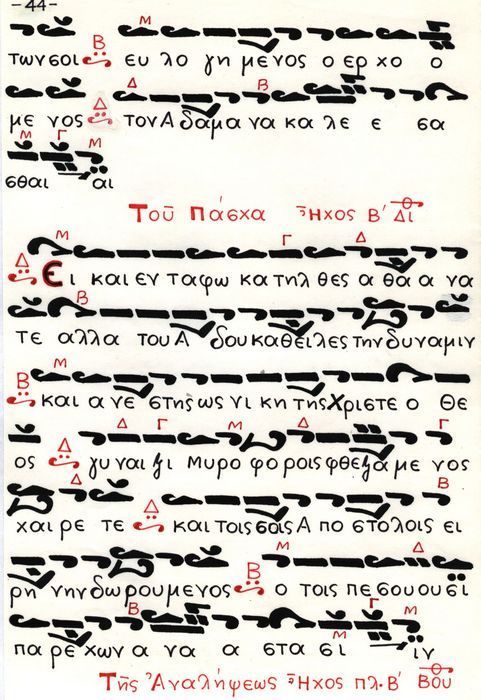 -44-
Μ
Β
των σοι ευ λο γη μενος ο ερ χο ο
Δ Β
με νος Δ τον Α δαμ α να κα λε ε σα
Μ Γ Μ
σθαι αι
Τοῦ Πάσχα Ἦχος Β΄ Δι
Μ Γ Δ
Δ Ει και εν ταφω κα τηλ θες α θα α να
Β
τε αλλα του Α δου καθειλες την δυναμιν
Μ
Β και α νε στης ως νι κη της Χριστε ο Θε
Δ Γ Μ Δ Γ
ος Δ γυναιξι μυρο φο ροις φθεξα με νος
Δ Β
χαι ρε τε Δ και τοις σοις Α πο στολοις ει
Μ Δ
ρη νην δω ρου μενος Β ο τοις πε σου ου σι
Β Γ Μ
πα ρε χων α να α στα σι Μ ιν
Τῆς Ἀναλήψεως Ἦχος πλ. Β΄ Βου